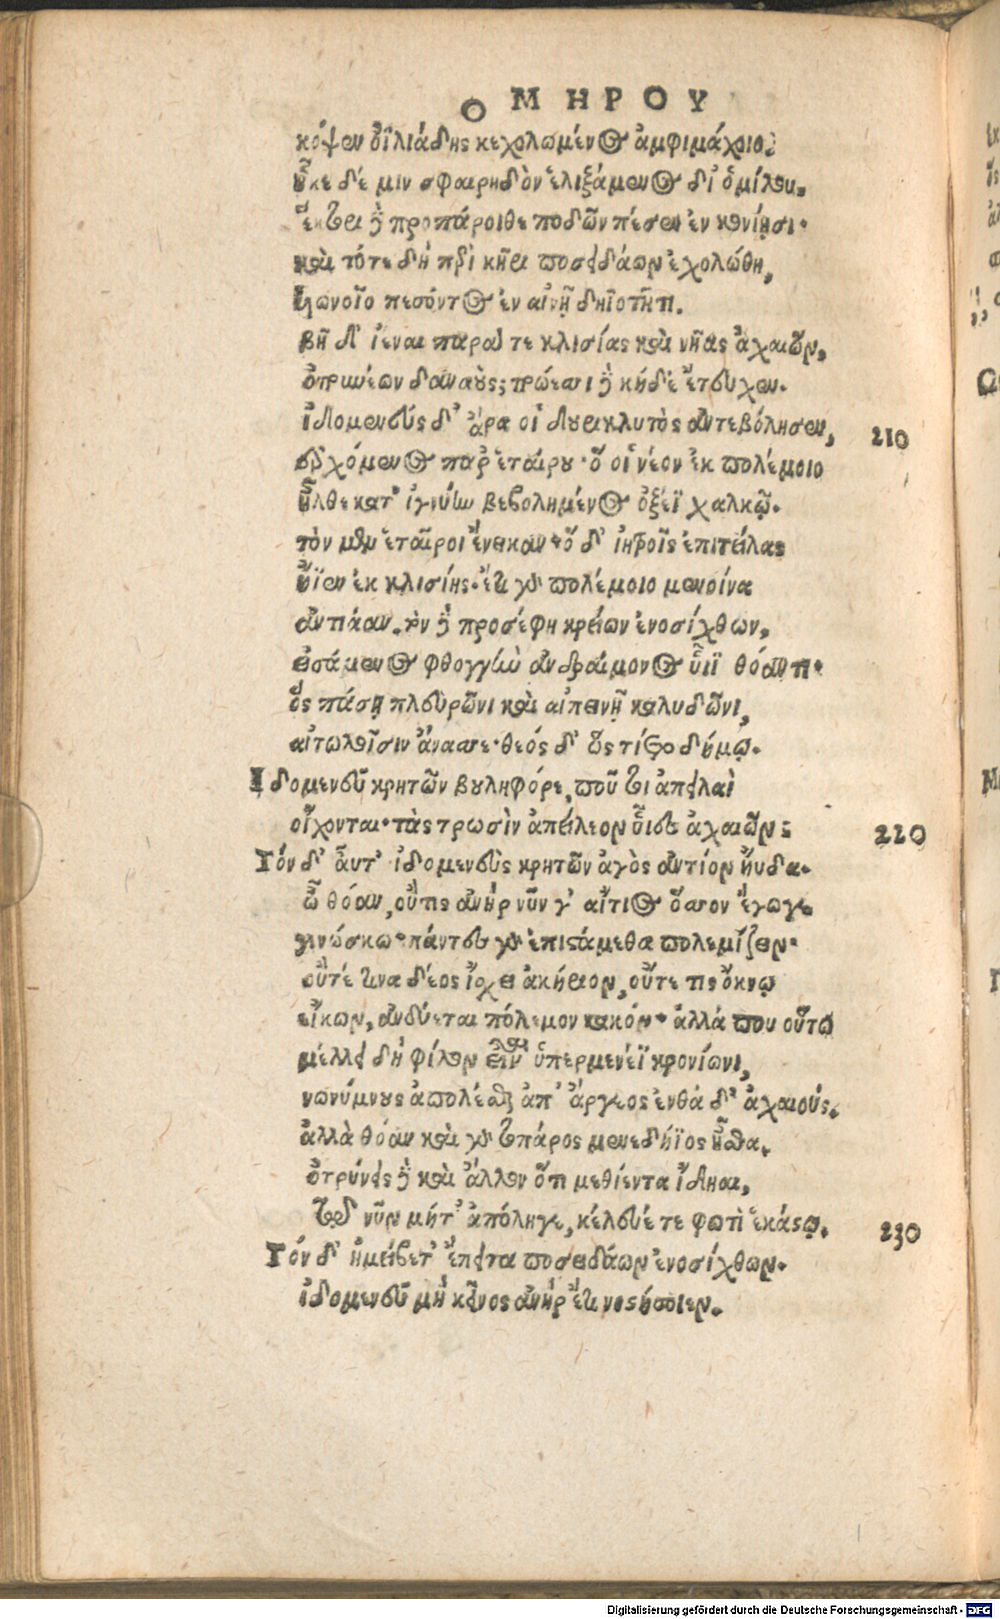 ΟΜΗΡΟΥ
κόψεν ὀϊλιάδης κεχολωμένος ἀμφιμάχοιο,
ἧκε δέ μιν σφαιρηδὸν ἑλιξάμενος δι' ὁμίλου.
ἕκτορι δὲ προπάροιθε ποδῶν πέσεν ἐν κονίῃσι.
καὶ τότε δὴ περὶ κῆρι ποσειδάων ἐχολώθη,
υἱωνοῖο πεσόντος ἐν αἰνῇ δηϊοτῆτι.
βῆ δ' ἰέναι παρά τε κλισίας καὶ νῆας ἀχαιῶν,
ὀτρυνέων δαναούς; τρώεσσι δὲ κήδε' ἔτευχεν.
ἰδομενεύς δ' ἄρα οἱ δουρικλυτὸς ἀντεβόλησεν, 210
ἐρχόμενος παρ' ἑταίρου· ὅ οἱ νέον ἐκ πολέμοιο
ἦλθε κατ' ἰγνύην βεβολημένος ὀξέϊ χαλκῷ.
τὸν μὲν ἑταῖροι ἔνεικαν· ὅ δ' ἰητροῖς ἐπιτείλας
ἤϊεν ἐκ κλισίης· ἔτι γὰρ πολέμοιο μενοίνα
ἀντιάαν. τὸν δὲ προσέφη κρείων ἐνοσίχθων,
εἰσάμενος φθογγὴν ἀνδραίμονος ὗϊϊ θόαντι·
ὅς πάσῃ πλευρῶνι καὶ αἰπεινῇ καλυδῶνι,
αἰτωλοῖσιν ἄνασσε· θεός δ' ὥς τίετο δήμῳ.
Ἰδομενεῦ κρητῶν βουληφόρε, ποῦ τοι ἀπειλαὶ
οἴχονται· τὰς τρωσὶν ἀπείλεον ὗιες ἀχαιῶν; 220
Τόν δ' αὖτ' ἰδομενεὺς κρητῶν ἀγὸς ἀντίον ηὔδα.
ὦ θόαν, οὔτις ἀνὴρ νῦν γ' αἴτιος ὅσσον ἔγωγε
γινώσκω· πάντες γὰρ ἐπιστάμεθα πολεμίζειν.
οὔτέ τινα δέος ἴσχει ἀκήριον, οὔτε τις ὄκνῳ
εἴκων, ἀνδύεται πόλεμον κακόν· ἀλλά που οὕτω
μέλλει δὴ φίλον εἶναι ὑπερμενέϊ κρονίωνι,
νωνύμνους ἀπολέσθαι ἀπ' ἄργεος ἐνθά δ' ἀχαιούς.
ἀλλὰ θόαν καὶ γὰρ τοπάρος μενεδήϊος ἦσθα,
ὀτρύνεις δὲ καὶ ἄλλον ὅτι μεθίεντα ἴδηαι,
τῷ νῦν μήτ' ἀπόληγε, κέλευέ τε φωτὶ ἑκάστῳ. 230
Τόν δ' ἠμείβετ' ἔπειτα ποσειδάων ἐνοσίχθων.
ἰδομενεῦ μὴ κεῖνος ἀνὴρ ἔτι νοστήσειεν.
Digitalisierung gefördert durch die Deutsche Forschungsgemeinschaft - DFG